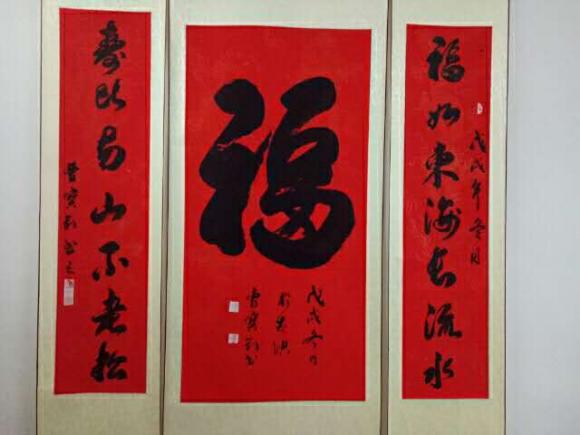 福如東海长流水
戊戌年冬月
福
戊戌冬月
寿比南山不老松